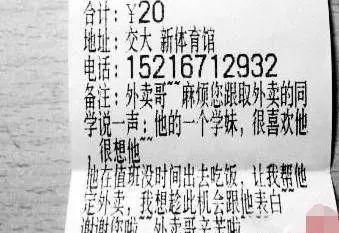 合计：¥20
地址：交大 新体育馆
电话：15216712932
备注：外卖哥~~麻烦您跟取外卖的同
学说一声：他的一个学妹，很喜欢他
，很想他~~
他在值班没时间出去吃饭，让我帮他
定外卖，我想趁此机会跟他表白~~
谢谢您啦~~外卖哥辛苦啦